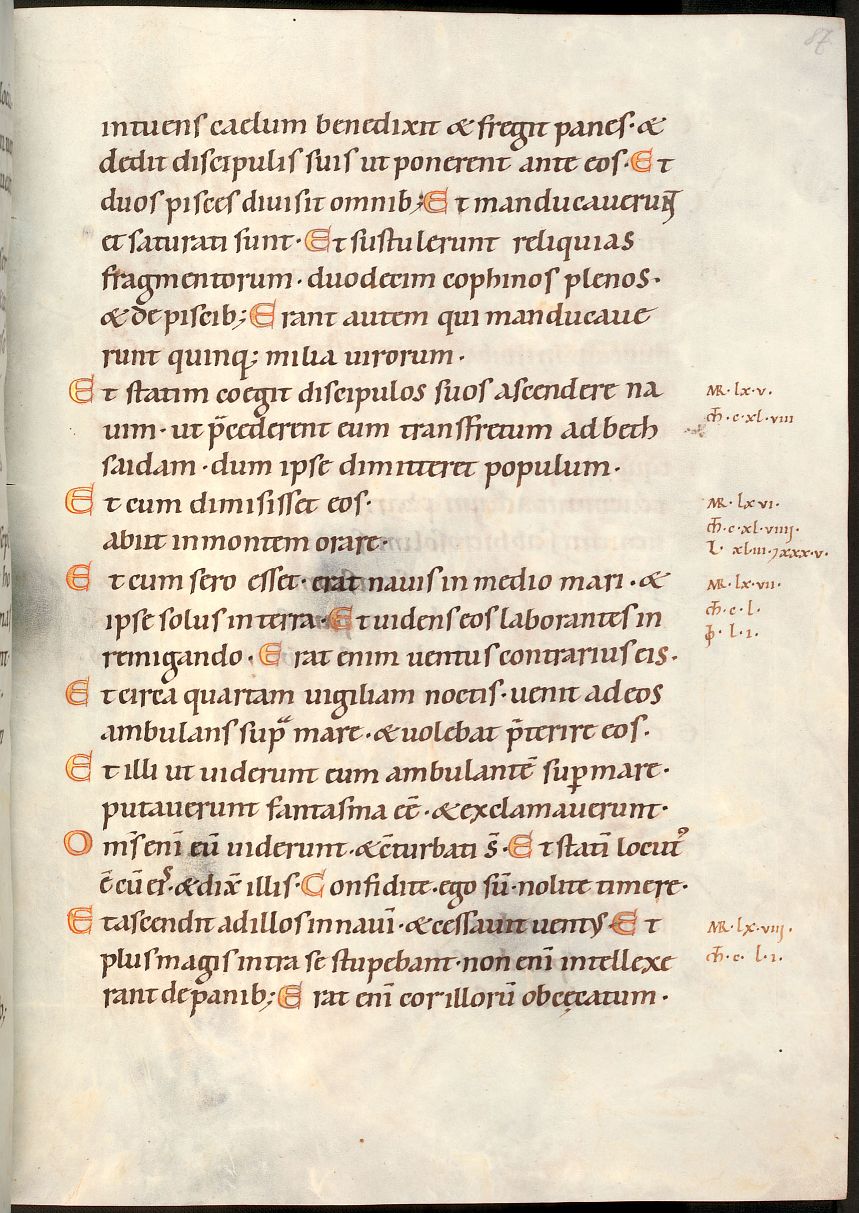 87
intuens caelum benedixit & fregit panes· &
dedit discipulis suis ut ponerent ante eos· Et
duos pisces diuisit omnib; Et manducauerunt
et saturati sunt· Et sustulerunt reliquias
fragmentorum· duodecim cophinos plenos·
& de piscib; Erant autem qui manducaue
runt quinq; milia uirorum·
Et statim coegit discipulos suos ascendere na
uim· ut p̄cederent eum transfretum ad beth
saidam· dum ipse dimitteret populum·
Et cum dimisisset eos·
abiit in montem orare·
Et cum sero esset· erat nauis in medio mari· &
ipse solus in terra· Et uidens eos laborantes in
remigando· Erat enim uentus contrarius eis·
Et circa quartam uigiliam noctis· uenit ad eos
ambulans sup̄ mare· & uolebat p̄terire eos·
Et illi ut uiderunt eum ambulantē suꝑ mare·
putauerunt fantasma eē· & exclamauerunt·
Om̄s enī eū uiderunt· & c̄turbati s̄· Et statī locut᾽
ē cū eis· & dix̄ illis· Confidite· ego sū· nolite timere·
Et ascendit ad illos in nauī· & cessauit uentus· Et
plus magis intra se stupebant· non enī intellexe
rant de panib; Erat enī cor illorū obcęcatum·
MR· lx·v·
m̄t·c·xl·viii
MR· lx vi·
m̄t·c·xl·viiii·
l· xliii· lxxx·v·
MR· lx·vii·
m̄t·c·l·
ɸ· l·i·
MR· lx·viii·
m̄t·c· l·i·